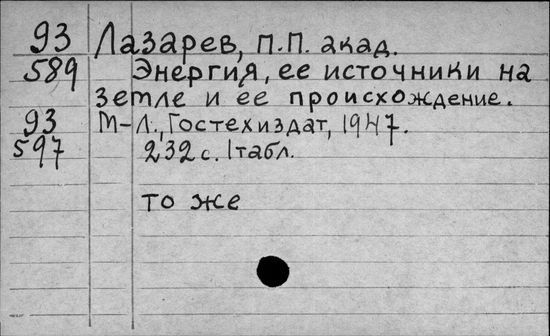 93 Лазарев, П.П. акад.
589 Энергия, ее источники на
Земле и ее происхождение.
93 М-Л., Гостехиздат, 1947.
597 232 с. 1табл.
то же